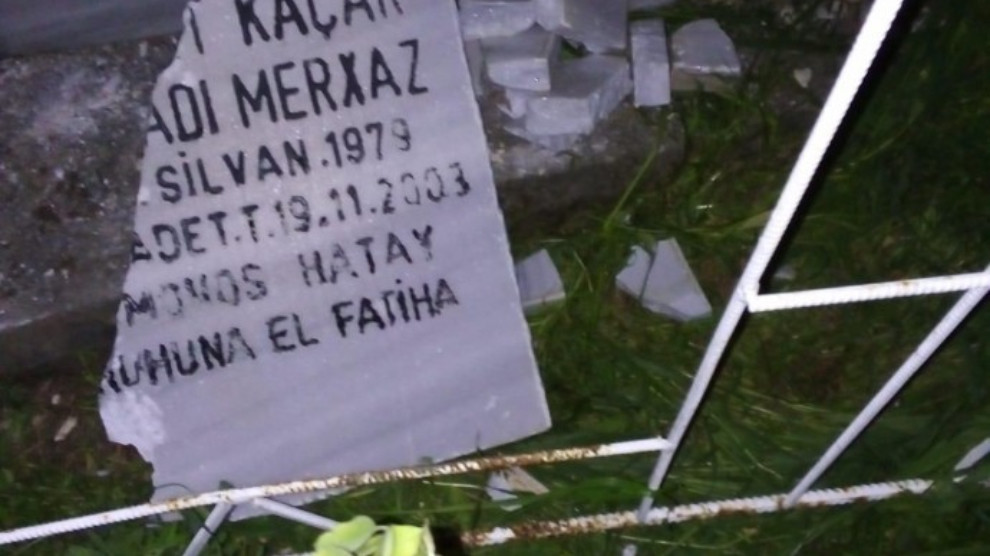 KAÇAR
ADI MERXAZ
SİLVAN.1979
ADET.T.19.11.2003
AMONOS HATAY
RUHUNA EL FATİHA